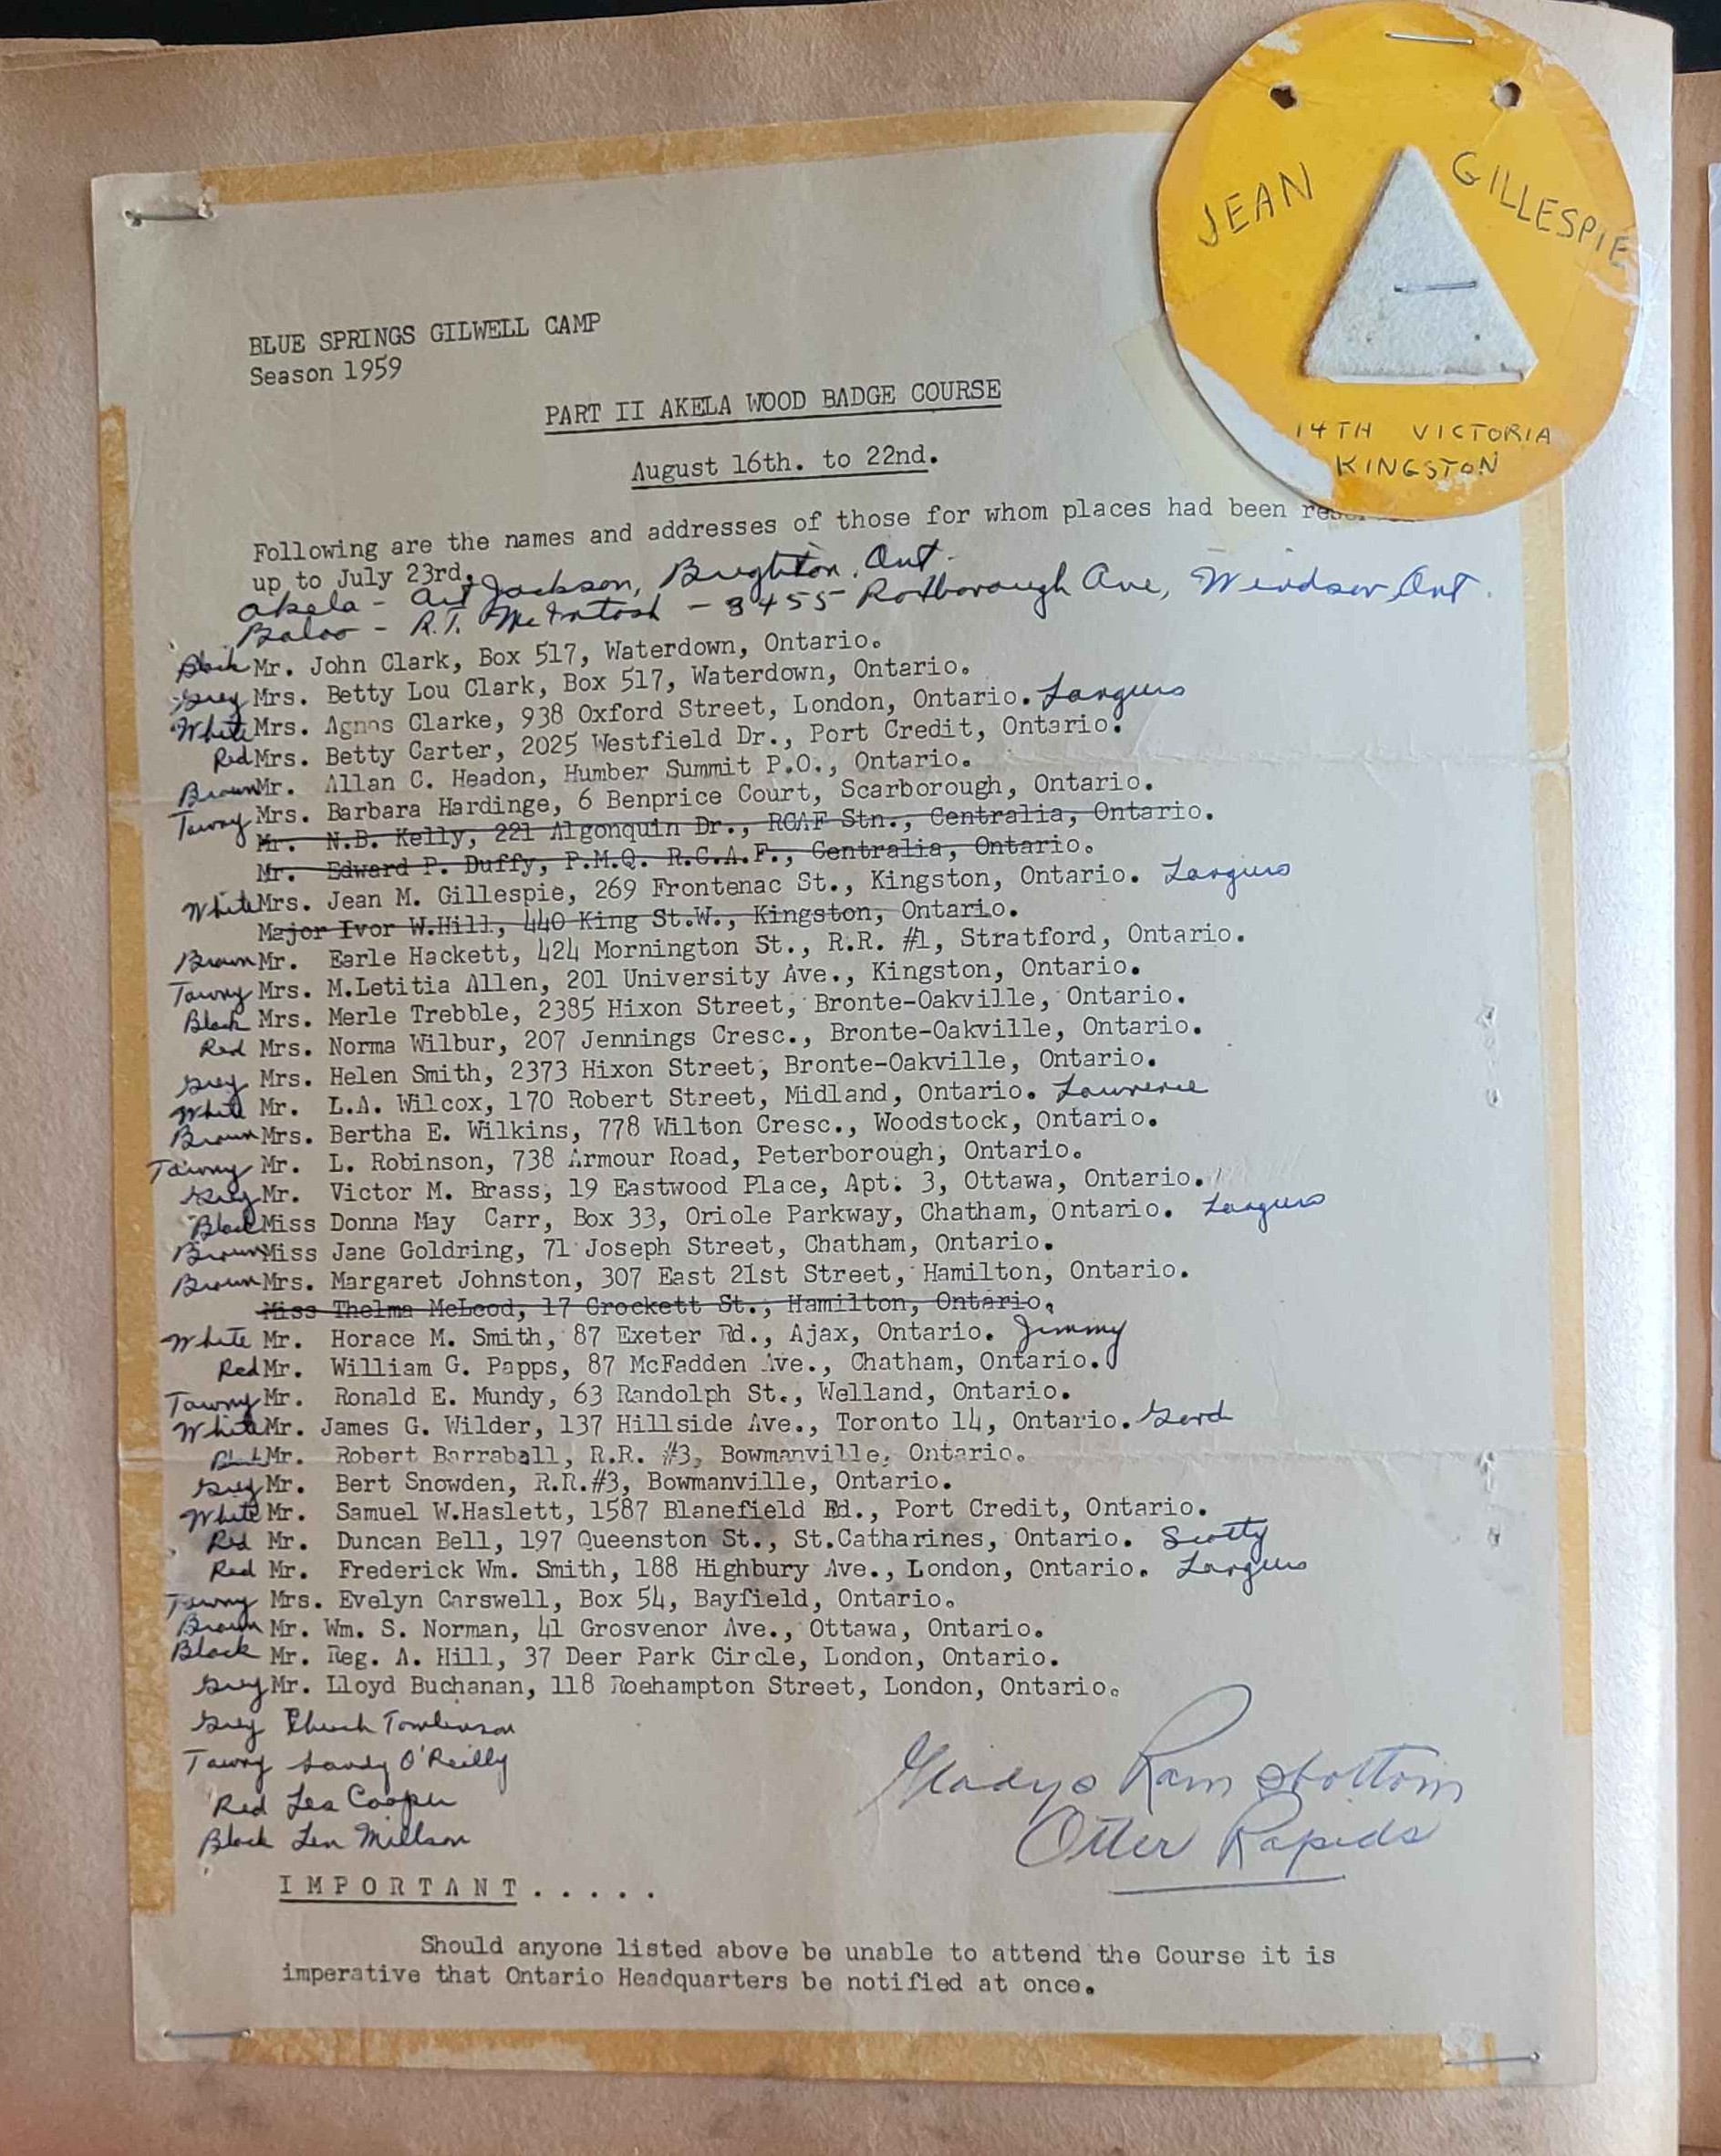 JEAN GILLESPIE
14TH VICTORIA
KINGSTON
BLUE SPRINGS GILWELL CAMP
Season 1959
PART II AKELA WOOD BADGE COURSE
August 16th. to 22nd.
Following are the names and addresses of those for whom places had been
up to July 23rd.
Akela - Art Jackson, Brighton, Ont.
Baloo - R.T. McIntosh - 3455 Roxborough Ave, Windsor, Ont.
Black Mr. John Clark, Box 517, Waterdown, Ontario.
Grey Mrs. Betty Lou Clark, Box 517, Waterdown, Ontario.
White Mrs. Agnes Clarke, 938 Oxford Street, London, Ontario.
Red Mrs. Betty Carter, 2025 Westfield Dr., Port Credit, Ontario.
Brown Mr. Allan C. Headon, Humber Summit P.O., Ontario.
Tawny Mrs. Barbara Hardinge, 6 Benprice Court, Scarborough, Ontario.
Mr. N.B. Kelly, 221 Algonquin Dr., RCAF Stn., Centralia, Ontario.
Mr. Edward P. Duffy, P.M.Q. R.C.A.F., Centralia, Ontario.
White Mrs. Jean M. Gillespie, 269 Frontenac St., Kingston, Ontario.
Major Ivor W.Hill, 440 King St.W., Kingston, Ontario.
Brown Mr. Earle Hackett, 424 Mornington St., R.R. #1, Stratford, Ontario.
Tawny Mrs. M.Letitia Allen, 201 University Ave., Kingston, Ontario.
Black Mrs. Merle Trebble, 2385 Hixon Street, Bronte-Oakville, Ontario.
Red Mrs. Norma Wilbur, 207 Jennings Cresc., Bronte-Oakville, Ontario.
Grey Mrs. Helen Smith, 2373 Hixon Street, Bronte-Oakville, Ontario.
White Mr. L.A. Wilcox, 170 Robert Street, Midland, Ontario. Lawrence
Brown Mrs. Bertha E. Wilkins, 778 Wilton Cresc., Woodstock, Ontario.
Tawny Mr. L. Robinson, 738 Armour Road, Peterborough, Ontario.
Grey Mr. Victor M. Brass, 19 Eastwood Place, Apt. 3, Ottawa, Ontario.
Black Miss Donna May Carr, Box 33, Oriole Parkway, Chatham, Ontario.
Brown Miss Jane Goldring, 71 Joseph Street, Chatham, Ontario.
Brown Mrs. Margaret Johnston, 307 East 21st Street, Hamilton, Ontario.
Miss Thelma McLeod, 17 Crockett St., Hamilton, Ontario.
White Mr. Horace M. Smith, 87 Exeter Rd., Ajax, Ontario. Jimmy
Red Mr. William G. Papps, 87 McFadden Ave., Chatham, Ontario.
Tawny Mr. Ronald E. Mundy, 63 Randolph St., Welland, Ontario.
White Mr. James G. Wilder, 137 Hillside Ave., Toronto 14, Ontario. Gord
Black Mr. Robert Barraball, R.R. #3, Bowmanville, Ontario.
Grey Mr. Bert Snowden, R.R.#3, Bowmanville, Ontario.
White Mr. Samuel W.Haslett, 1587 Blanefield Ed., Port Credit, Ontario.
Red Mr. Duncan Bell, 197 Queenston St., St.Catharines, Ontario. Scotty
Red Mr. Frederick Wm. Smith, 188 Highbury Ave., London, Ontario.
Tawny Mrs. Evelyn Carswell, Box 54, Bayfield, Ontario.
Brown Mr. Wm. S. Norman, 41 Grosvenor Ave., Ottawa, Ontario.
Black Mr. Reg. A. Hill, 37 Deer Park Circle, London, Ontario.
Grey Mr. Lloyd Buchanan, 118 Roehampton Street, London, Ontario.
Grey Chuck Tomlinson
Tawny Sandy O'Reilly
Red Les Cooper
Black Len Millson
Gladys Ramsbottom
Otter Rapids
IMPORTANT.....
Should anyone listed above be unable to attend the Course it is
imperative that Ontario Headquarters be notified at once.